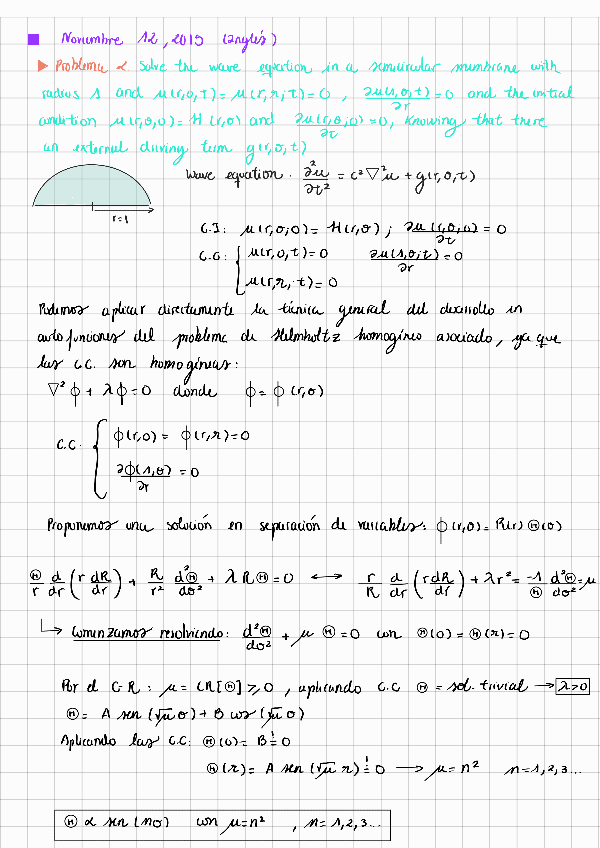 Noviembre 12, 2019 (inglés)
Problema 2 Solve the wave equation in a semicircular membrane with
radius 1 and u(r,0,t)=u(r,π,t)=0 , ∂u(1,θ,t)/∂r=0 and the initial
condition u(r,θ,0)=H(r,θ) and ∂u(r,θ,0)/∂t=0, knowing that there
an external driving term g(r,θ,t)
Wave equation. ∂²u/∂t² = c²∇²u + g(r,θ,t)
r=1
C.I: u(r,θ,0)= H(r,θ) ; ∂u(r,θ,0)/∂t = 0
C.C: { u(r,0,t)=0 ∂u(1,θ,t)/∂r=0
u(r,π,t)=0
Podemos aplicar directamente la técnica general del desarrollo en
autofunciones del problema de Helmholtz homogéneo asociado, ya que
las C.C. son homogéneas:
∇²ϕ+λϕ=0 donde ϕ=ϕ(r,θ)
C.C. { ϕ(r,0)= ϕ(r,π)=0
∂ϕ(1,θ)/∂r = 0
Proponemos una solución en separación de variables: ϕ(r,θ)=R(r)Θ(θ)
Θ/r d/dr (r dR/dr) + R/r² d²Θ/dθ² + λRΘ=0 ⟷ r/R d/dr (r dR/dr) + λr² = -1/Θ d²Θ/dθ² = μ
↳ Comenzamos resolviendo: d²Θ/dθ² + μΘ=0 con Θ(0)=Θ(π)=0
Por el C·R: μ= CR[Θ]≥0 , aplicando C.C Θ= sol. trivial → λ>0
Θ= A sen(√μ θ)+B cos(√μ θ)
Aplicando las C.C: Θ(0)= B≟0
Θ(π)= A sen(√μ π)≟0 → μ=n² n=1,2,3...
Θ ∝ sen(nθ) con μ=n² , n=1,2,3...